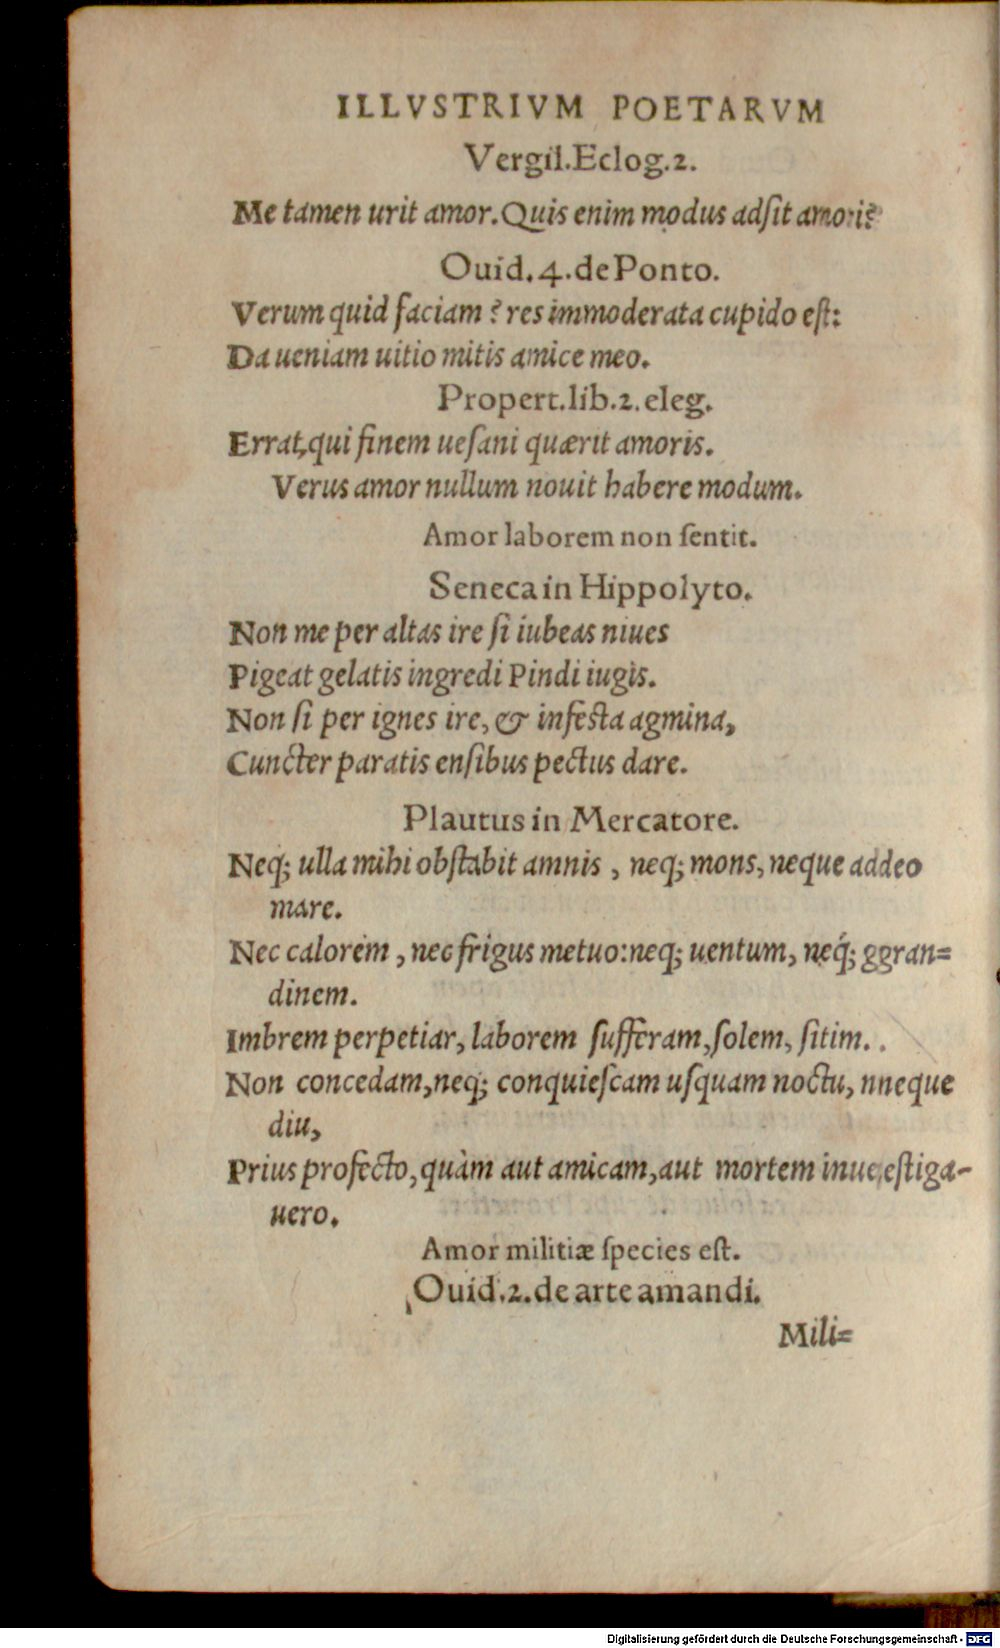 ILLVSTRIVM POETARVM
Vergil.Eclog.2.
Me tamen urit amor.Quis enim modus adſit amori?
Ouid.4.de Ponto.
Verum quid faciam? res immoderata cupido eſt:
Da ueniam uitio mitis amice meo.
Propert.lib.2.eleg.
Errat,qui finem ueſani quærit amoris.
Verus amor nullum nouit habere modum.
Amor laborem non ſentit.
Seneca in Hippolyto.
Non me per altas ire ſi iubeas niues
Pigeat gelatis ingredi Pindi iugis.
Non ſi per ignes ire, & infeſta agmina,
Cuncter paratis enſibus pectus dare.
Plautus in Mercatore.
Neq; ulla mihi obſtabit amnis, neq; mons, neque addeo
mare.
Nec calorem, nec frigus metuo:neq; uentum, neq́; ggran=
dinem.
Imbrem perpetiar, laborem ſufferam,ſolem, ſitim..
Non concedam,neq; conquieſcam uſquam noctu, nneque
diu,
Prius profecto,quàm aut amicam,aut mortem inueeſtiga-
uero.
Amor militiæ ſpecies eſt.
Ouid.2.de arte amandi.
Mili=
Digitalisierung gefördert durch die Deutsche Forschungsgemeinschaft - DFG